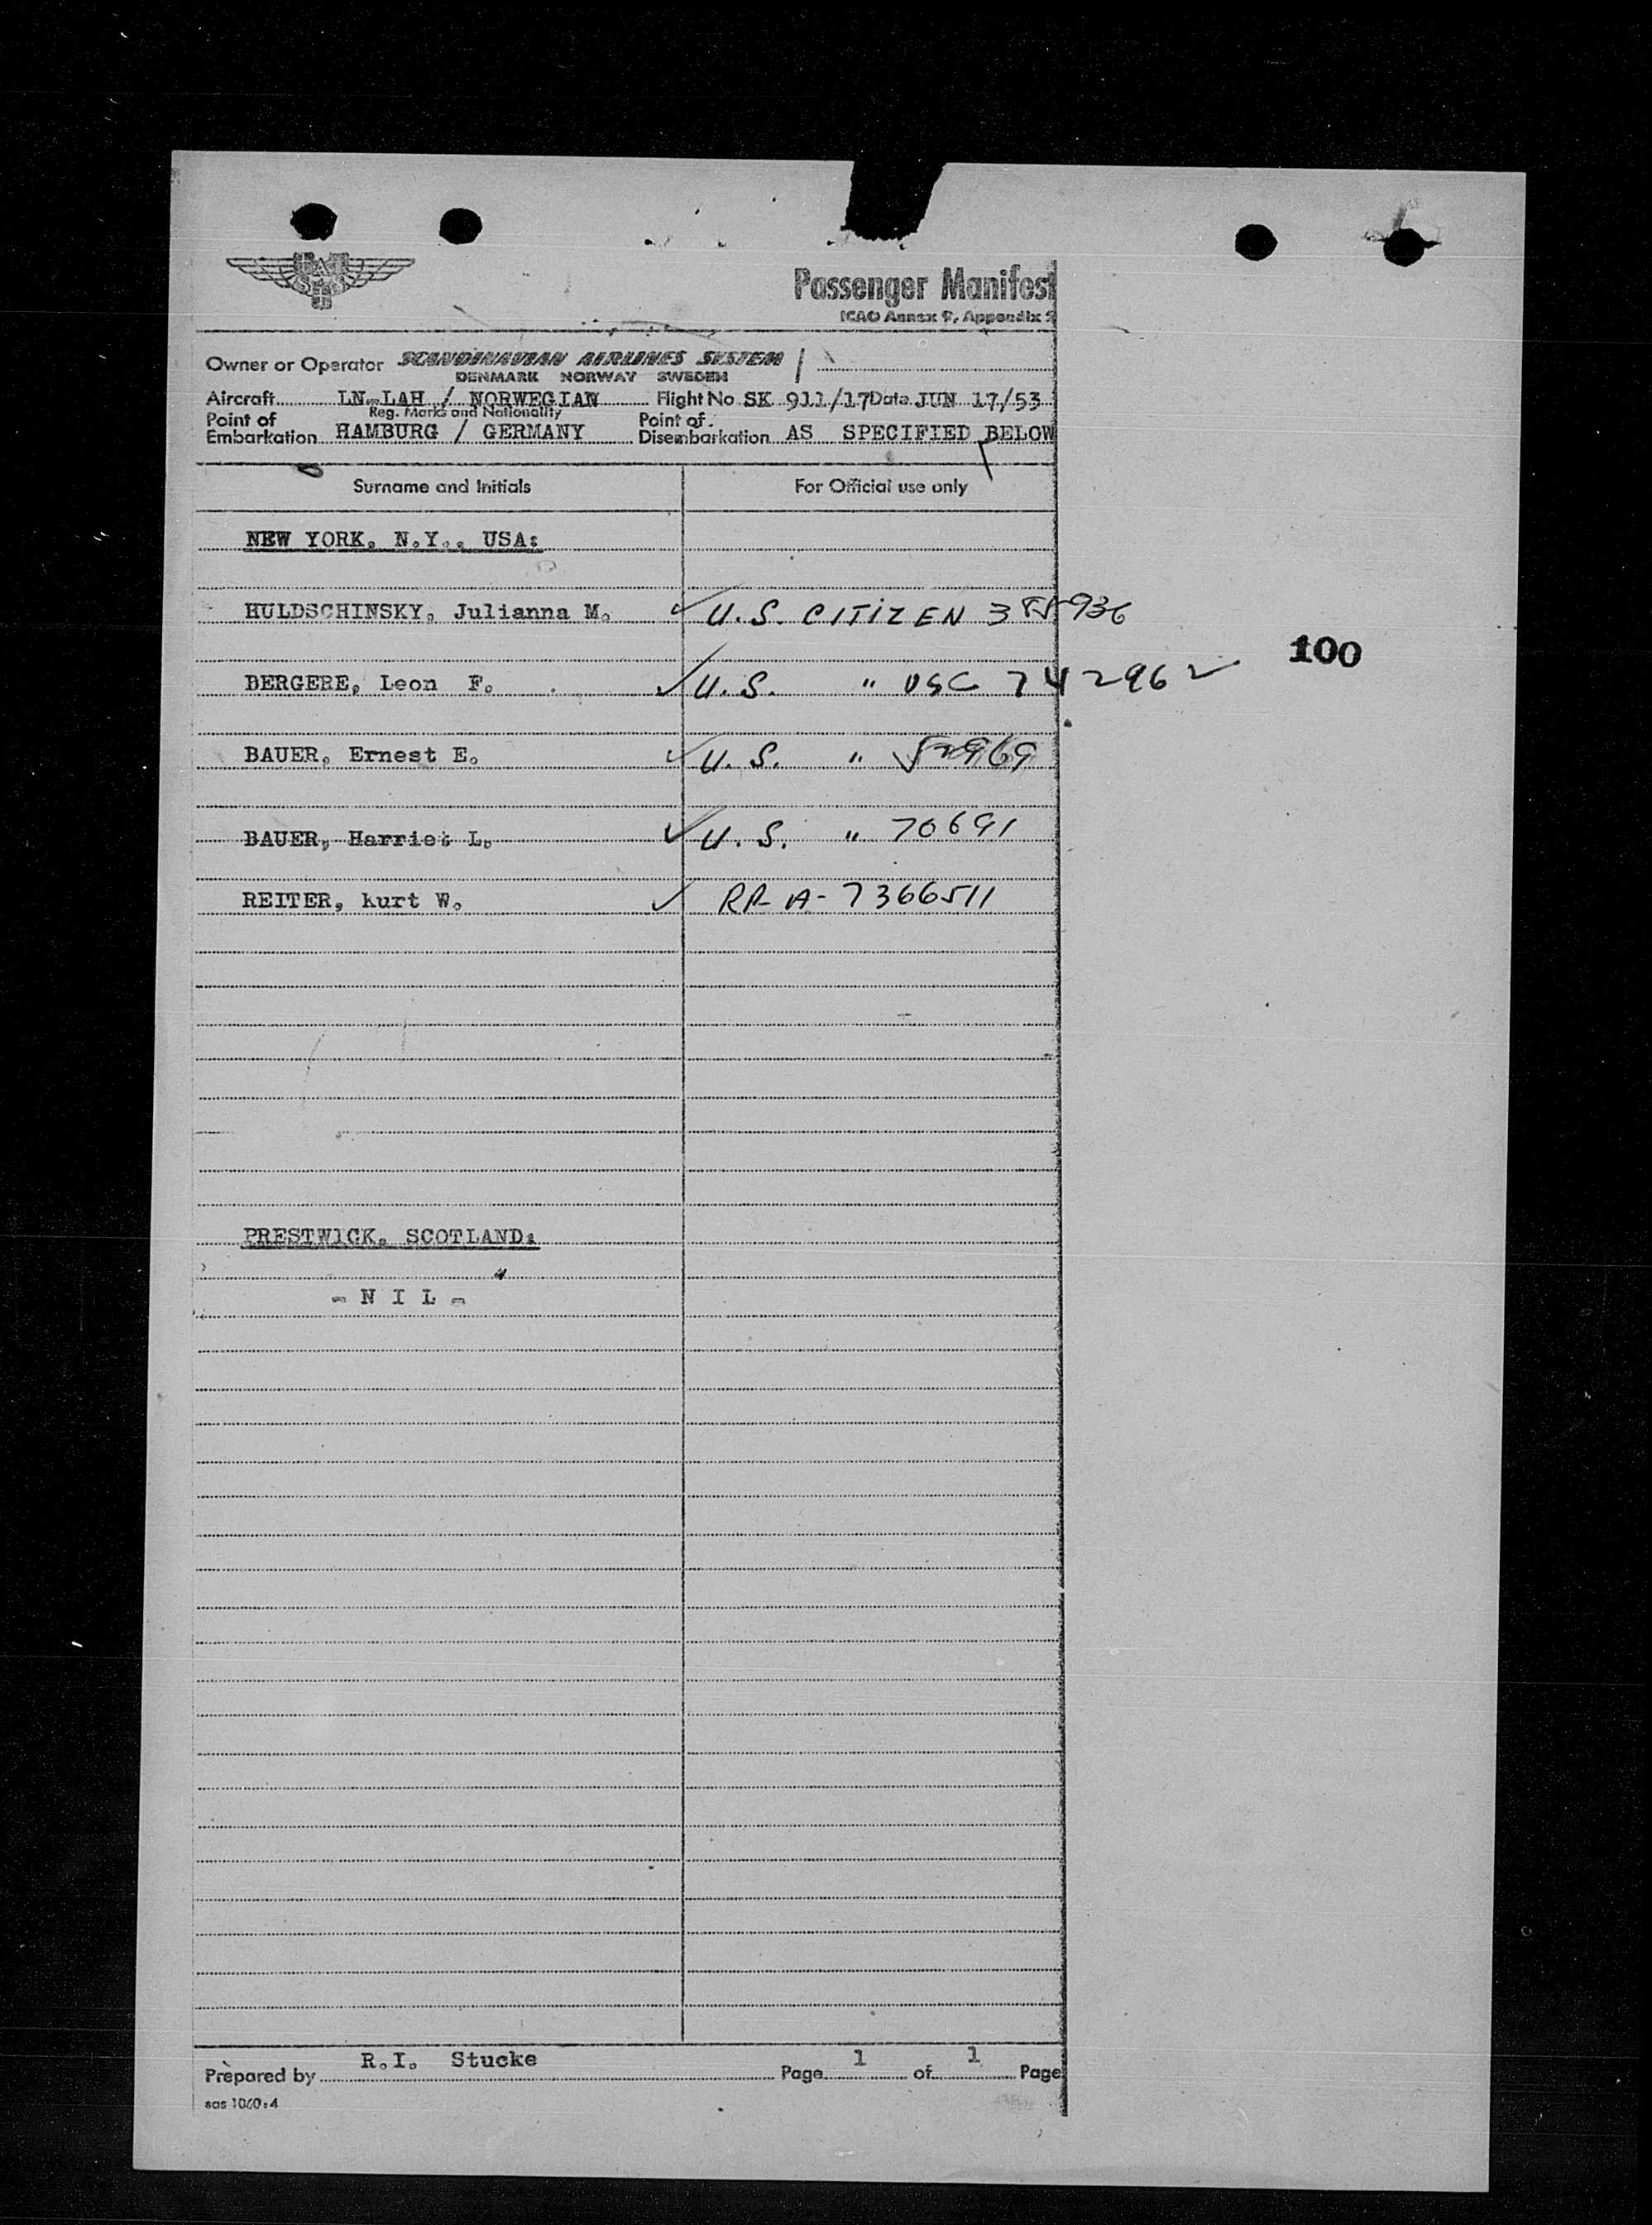 Passenger Manifest
ICAO Annex 9, Appendix
Owner or Operator SCANDINAVIAN AIRLINES SYSTEM
DENMARK NORWAY SWEDEN
Aircraft LN-LAH / NORWEGIAN Flight No SK 911/17 Date JUN 17/53
Reg. Marks and Nationality
Point of Embarkation HAMBURG / GERMANY Point of Disembarkation AS SPECIFIED BELOW
Surname and Initials For Official use only
NEW YORK, N.Y., USA:
HULDSCHINSKY, Julianna M. U.S. CITIZEN
100
BERGERE, Leon F. U.S. " USC 742962
BAUER, Ernest E. U.S. " 52969
BAUER, Harriet L. U.S. " 70691
REITER, kurt W. A-7366511
PRESTWICK, SCOTLAND:
- N I L -
Prepared by R.I. Stucke Page 1 of 1 Page
sas 1060:4